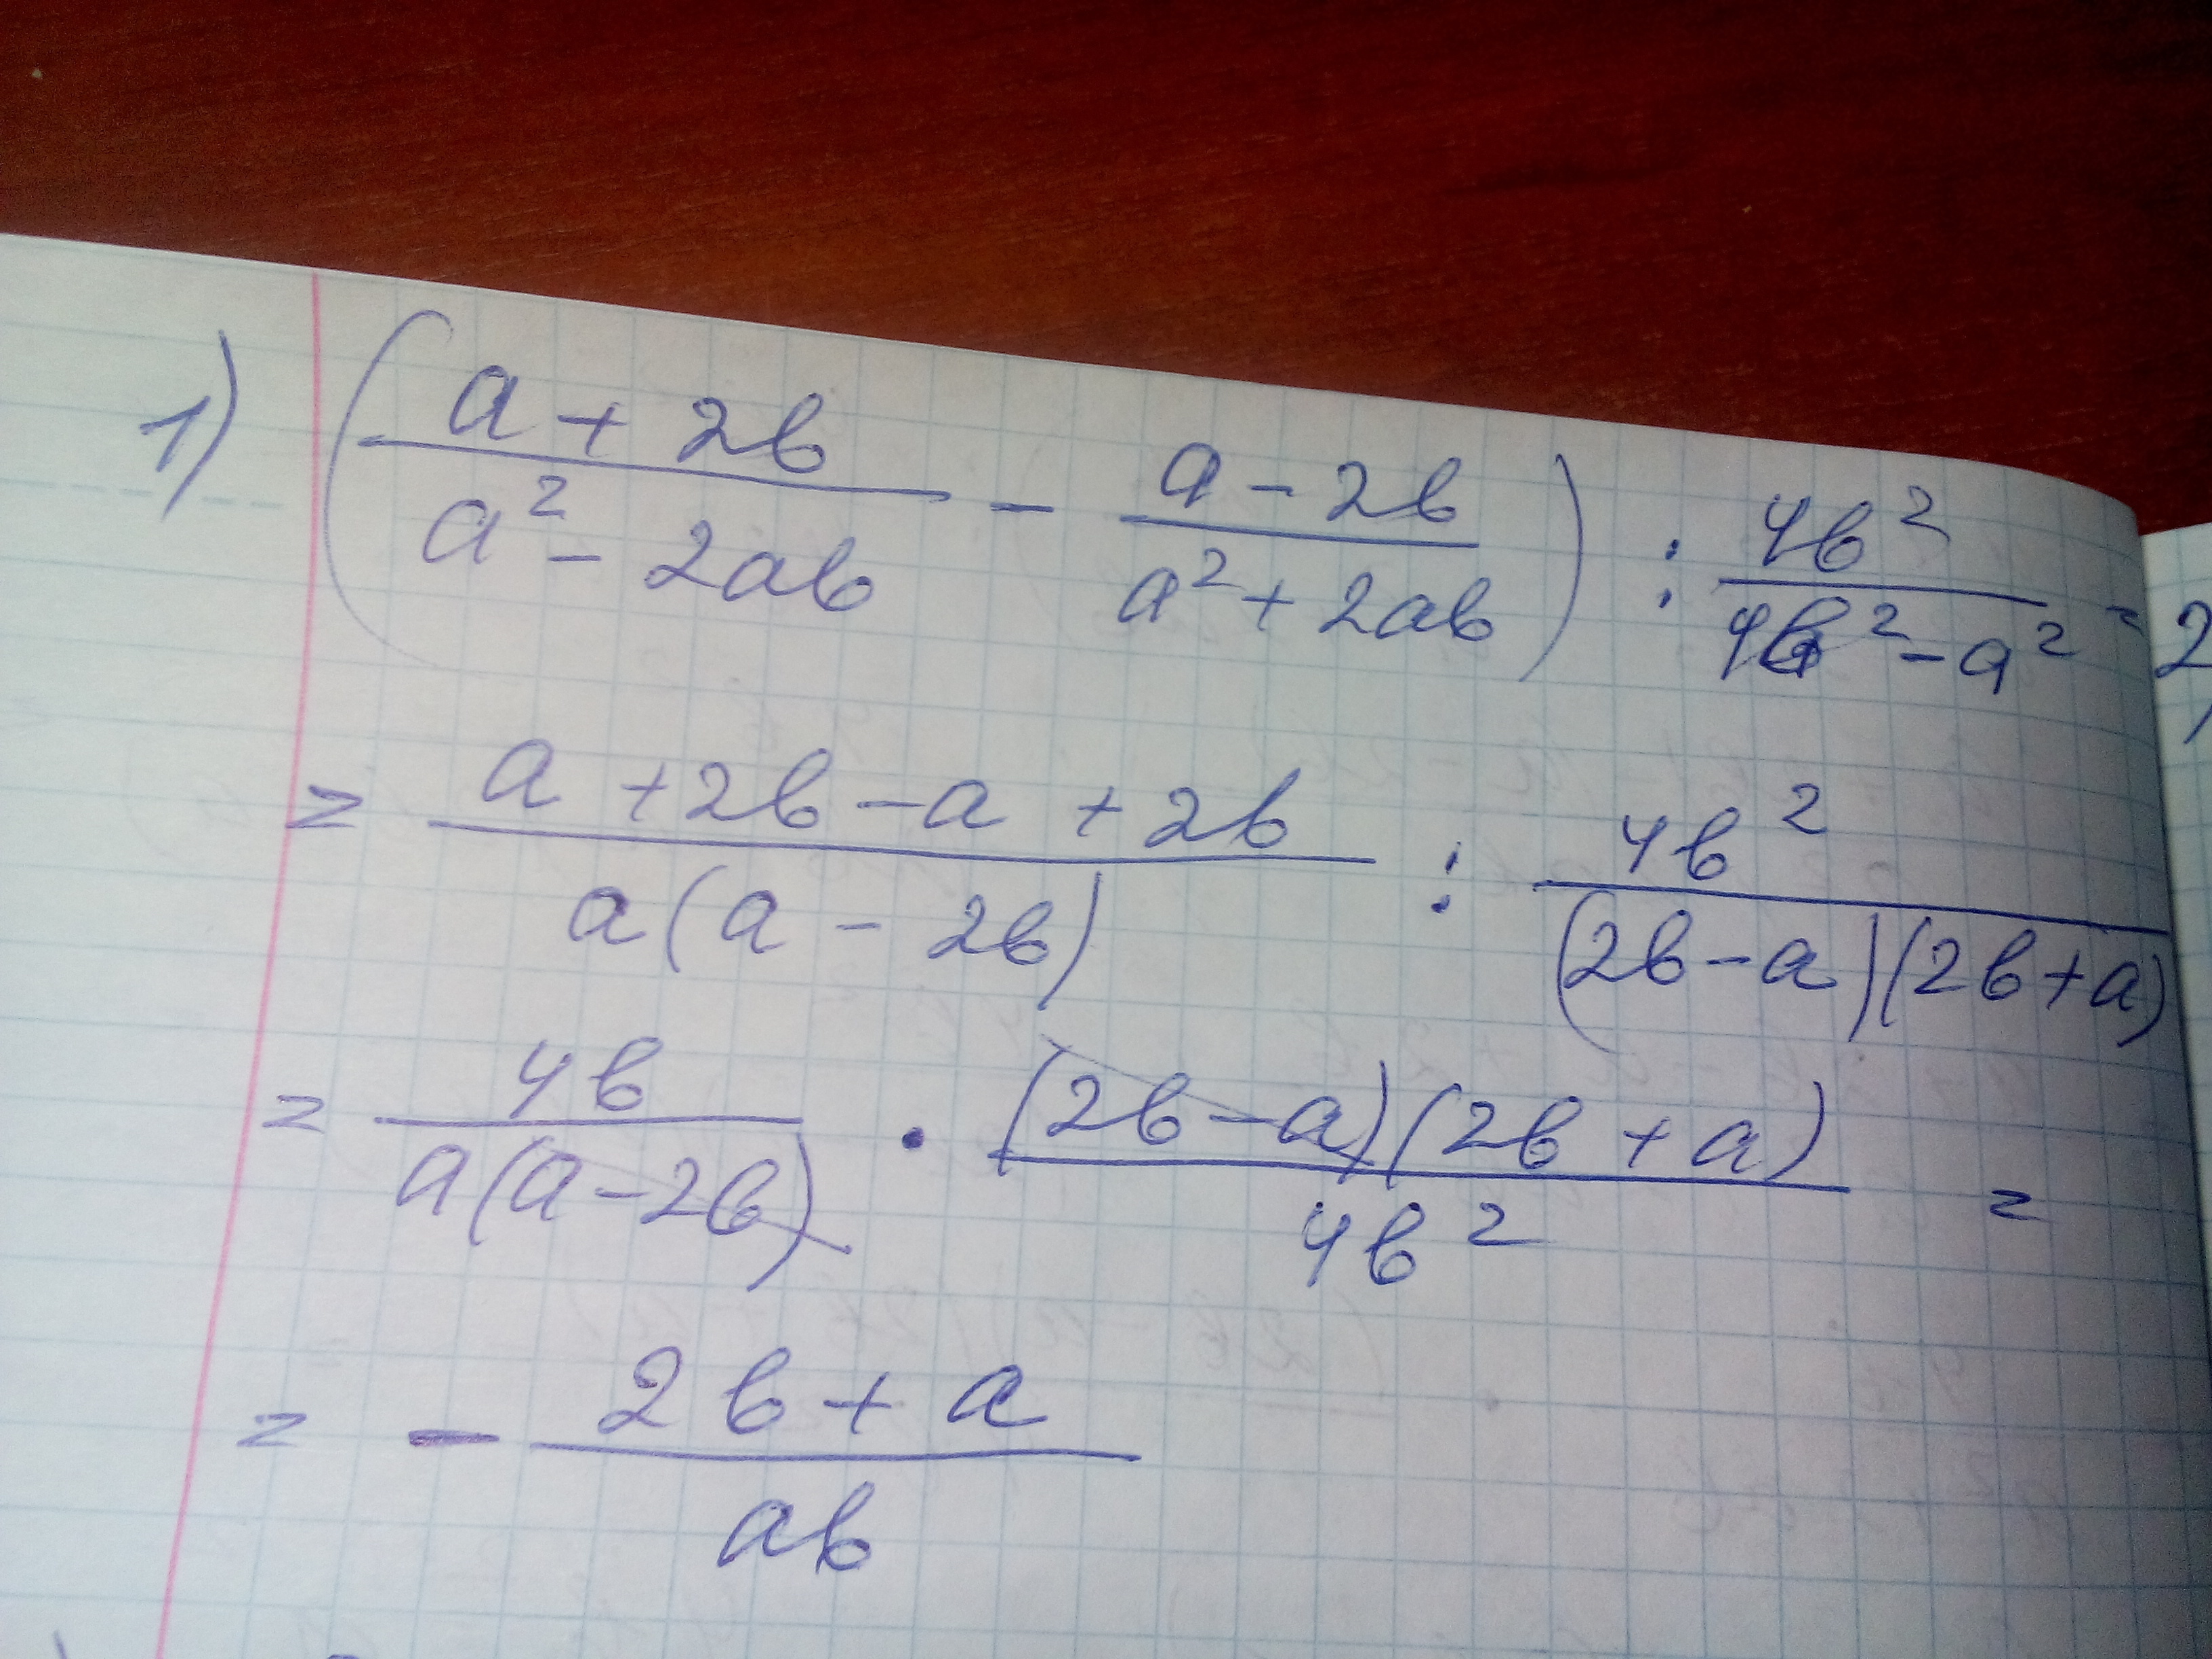 1) (a + 2b / a² - 2ab - a - 2b / a² + 2ab) : 4b² / 4b² - a² =
= a + 2b - a + 2b / a(a - 2b) : 4b² / (2b - a)(2b + a)
= 4b / a(a - 2b) · (2b - a)(2b + a) / 4b² =
= - 2b + a / ab
2